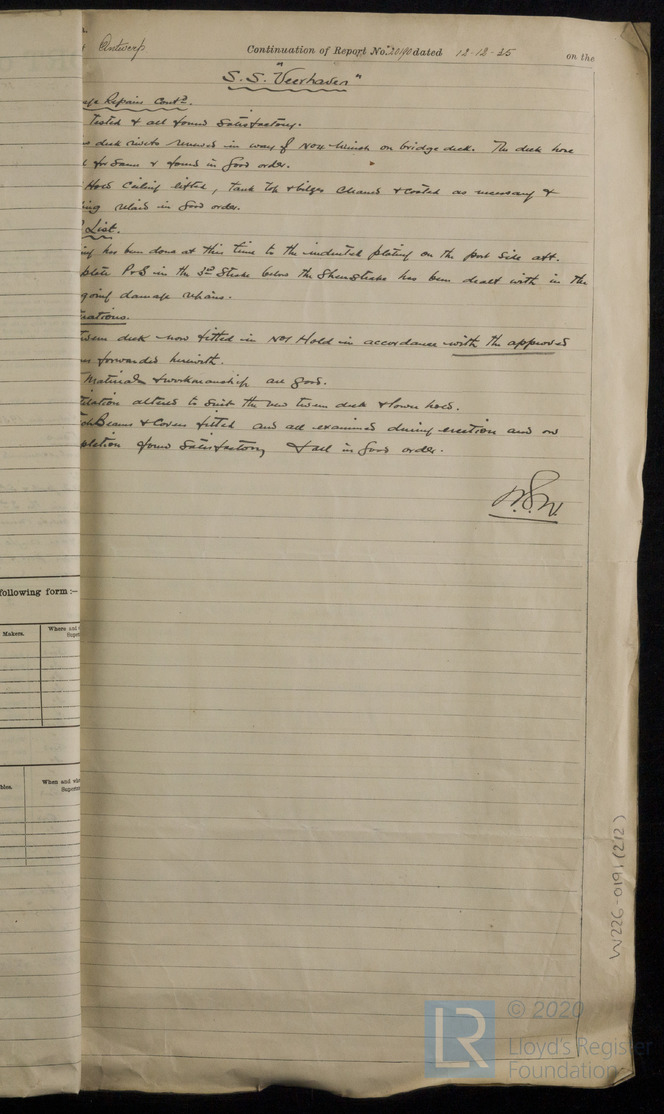 Antwerp Continuation of Report No. 20190 dated 12-12-25 on the
S.S. "Veerhaven"
Repairs Contd.
Tested & all found Satisfactory.
deck rivets renewed in way of No 4 winch on bridge deck. The deck hose
for same & found in good order.
Hold Ceiling lifted, tank top & bilges cleaned & coated as necessary &
ing relaid in good order.
List.
has been done at this time to the indented plating on the port side aft.
plate P&S in the 3rd Strake below the Sheerstrake has been dealt with in the
going damage repairs.
ations.
tween deck now fitted in No 1 Hold in accordance with the approved
forwarded herewith.
Materials & workmanship are good.
tilation altered to suit the new tween deck & lower hold.
Beams & Covers fitted and all examined during erection and on
pletion found Satisfactory & all in good order.
following form :—
Makers.
Where and
When and wh
W226-0191 (212)
LR
© 2020
Lloyd's Register
Foundation